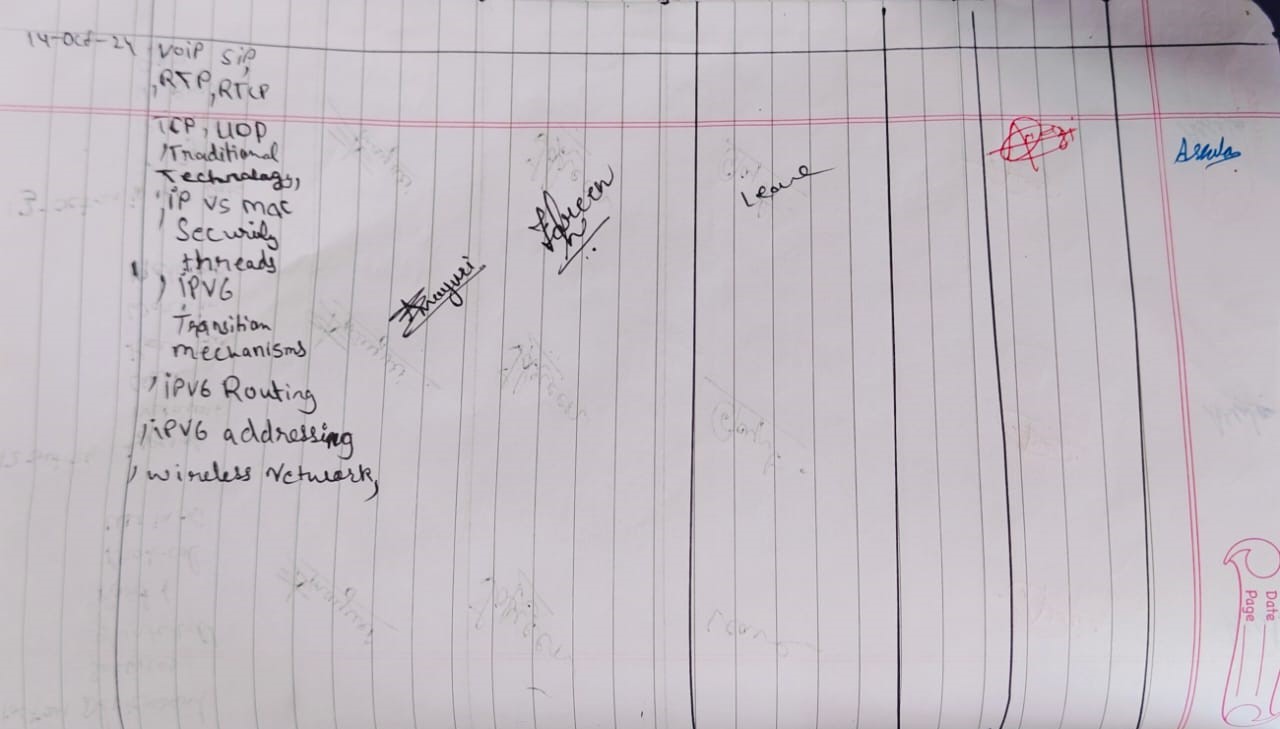 14-Oct-24 VoiP SiP,
,RTP,RTCP
TCP, UDP
,Traditional
Technology,
,iP VS mac
Security
threads
, iPV6
Transition
mechanisms
,iPV6 Routing
,iPV6 addressing
,wireless Network,
mayuri
Leave
Date
Page